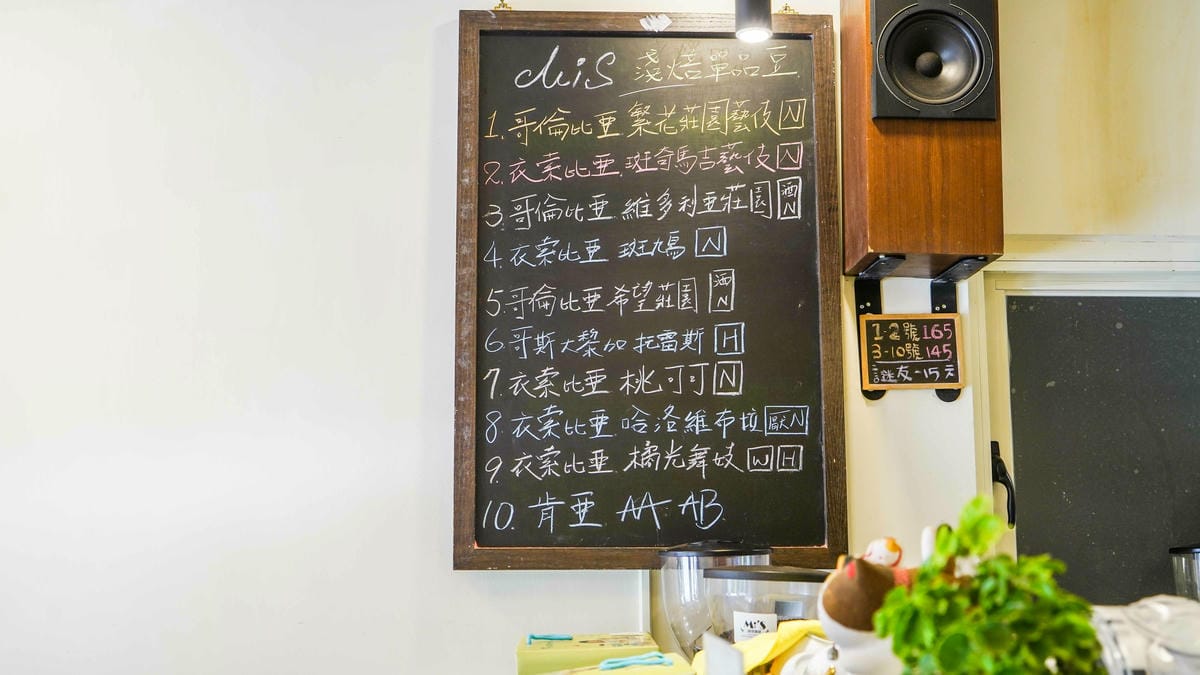 Mis 淺焙單品豆
1. 哥倫比亞 繁花莊園藝伎 N
2. 衣索比亞 班奇馬吉藝伎 N
3. 哥倫比亞 維多利亞莊園 酒N
4. 衣索比亞 斑鳩 N
5. 哥倫比亞 希望莊園 酒N
6. 哥斯大黎加 托雷斯 H
7. 衣索比亞 桃可可 N
8. 衣索比亞 哈洛維布拉 厭N
9. 衣索比亞 橘光舞妓 W H
10. 肯亞 AA AB
1-2號 165
3-10號 145
謎友-15元
Mi's